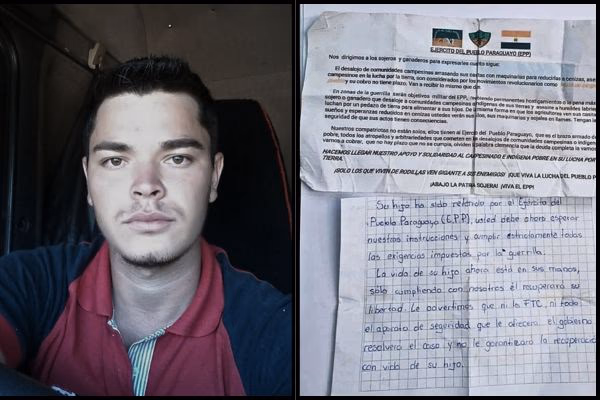 EJERCITO DEL PUEBLO PARAGUAYO (EPP)
Nos dirigimos a los sojeros y ganaderos para expresarles cuanto sigue:
El desalojo de comunidades campesinas arrasando sus casitas con maquinarias para reducirlas a cenizas, ase
campesinos en la lucha por la tierra, son considerados por los movimientos revolucionarios como
y su cobro no tiene plazo. Van a recibir lo mismo que dan.
En zonas de la guerrilla serán objetivos militar del EPP, recibiendo permanentes hostigamientos o la pena máx
sojero o ganadero que desaloje a comunidades campesinas indígenas de sus tierras y asesine a humildes lab
luchan por un pedazo de tierra para alimentar a sus hijos. De la misma forma en que los agricultores ven sus casitas
sueños y esperanzas reducidos en cenizas ustedes verán sus silos, sus maquinarias y sojales en llamas. Tengan la
seguridad de que sus actos tienen consecuencias.
Nuestros compatriotas no están solos, ellos tienen al Ejercito del Pueblo Paraguayo, que es el brazo armado de
pobre, todos los atropellos y arbitrariedades que cometen en desalojo de comunidades campesinas o indígenas
vamos a cobrar, que no hay plazo que no se cumpla, olviden la palabra clemencia que la deuda completa la vamos
HACEMOS LLEGAR NUESTRO APOYO Y SOLIDARIDAD AL CAMPESINADO E INDÍGENA POBRE EN SU LUCHA POR
TIERRA.
¡SOLO LOS QUE VIVEN DE RODILLAS VEN GIGANTE A SUS ENEMIGOS! ¡QUE VIVA LA LUCHA DEL PUEBLO P
¡ABAJO LA PATRIA SOJERA! ¡VIVA EL EPP!
Su hijo ha sido retenido por el Ejército del
Pueblo Paraguayo (E.P.P), usted debe ahora esperar
nuestras instrucciones y cumplir estrictamente todas
las exigencias impuestas por la guerrilla.
La vida de su hijo ahora está en sus manos,
sólo cumpliendo con nosotros él recuperara su
libertad. Le advertimos que ni la FTC, ni todo
el aparato de seguridad que le ofrecera el gobierno
resolverá el caso y no le garantizara la recuperación
con vida de su hijo.